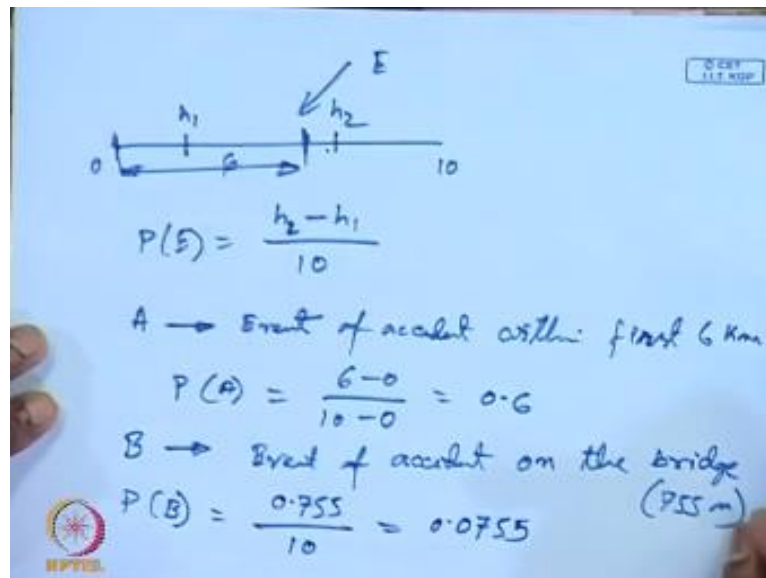 E
© CET
I.I.T. KGP
h₁ h₂
0 6 10
P(E) = (h₂ - h₁) / 10
A → Event of accident within first 6 Km
P(A) = (6-0) / (10-0) = 0.6
B → Event of accident on the bridge
(755 m)
P(B) = 0.755 / 10 = 0.0755
NPTEL